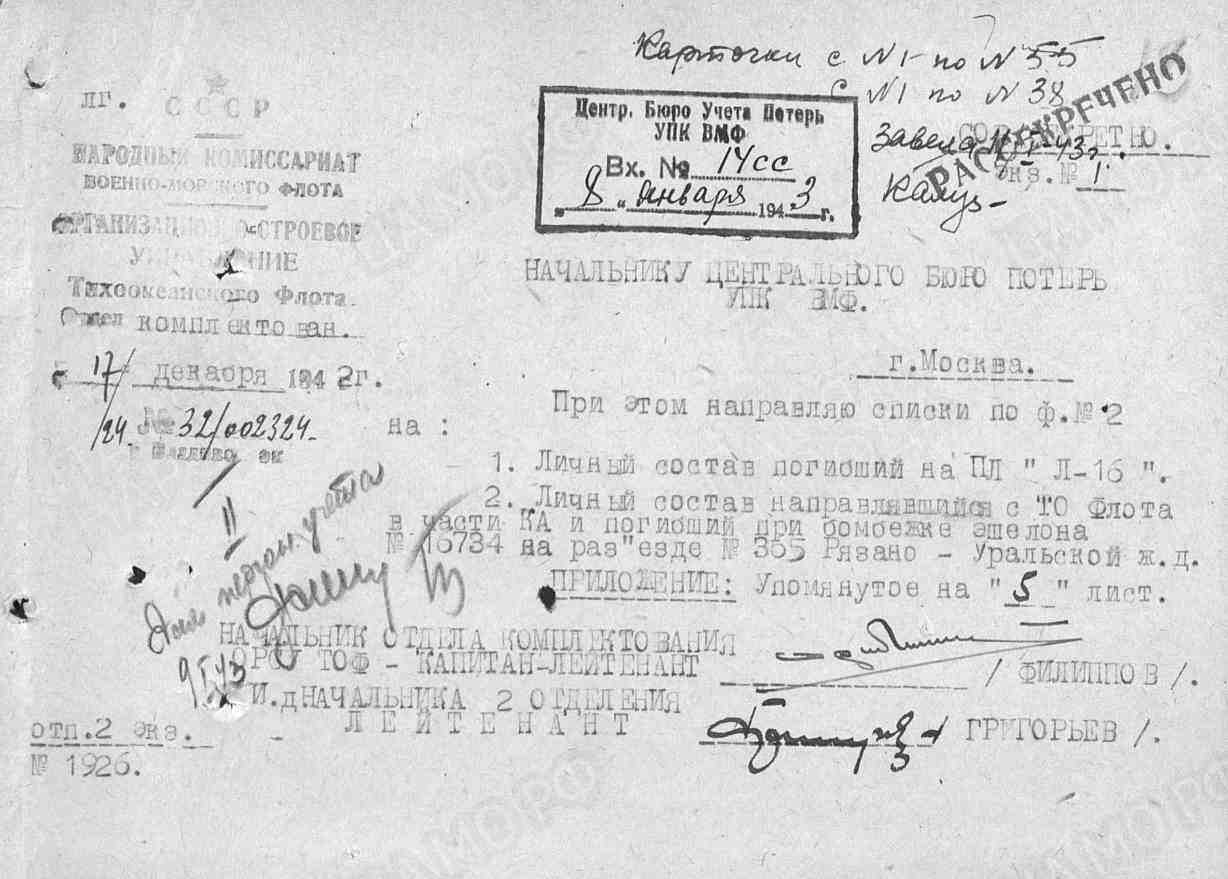 Карточки с N1 по N 55
с N1 по N 38
лг.
СССР
НАРОДНЫЙ КОМИССАРИАТ
ВОЕННО-МОРСКОГО ФЛОТА
ОРГАНИЗАЦИОННО-СТРОЕВОЕ
УПРАВЛЕНИЕ
Тихоокеанского Флота.
Отдел комплектован.
17/ декабря 1942г.
/24 № 32/002324
г Владиво ок
Центр. Бюро Учета Потерь
УПК ВМФ
Вх. № 14сс
"8" января 1943г.
РАССЕКРЕЧЕНО
СОВ.СЕКРЕТНО.
Завела 43г.
Экз.№ 1
НАЧАЛЬНИКУ ЦЕНТРАЛЬНОГО БЮРО ПОТЕРЬ
УПК ВМФ.
г.Москва.
При этом направляю списки по ф.№ 2
на :
1. Личный состав погибший на ПЛ " Л-16 ".
2. Личный состав направлявшийся с ТО Флота
в части КА и погибший при бомбежке эшелона
№ 16734 на раз"езде № 365 Рязано - Уральской ж.д.
ПРИЛОЖЕНИЕ: Упомянутое на " 5 " лист.
II
Для персон. учета
9/I 43
НАЧАЛЬНИК ОТДЕЛА КОМПЛЕКТОВАНИЯ
ОРСУ ТОФ - КАПИТАН-ЛЕЙТЕНАНТ
/ ФИЛИППОВ /.
И.д НАЧАЛЬНИКА 2 ОТДЕЛЕНИЯ
ЛЕЙТЕНАНТ
ГРИГОРЬЕВ /.
отп.2 экз.
№ 1926.